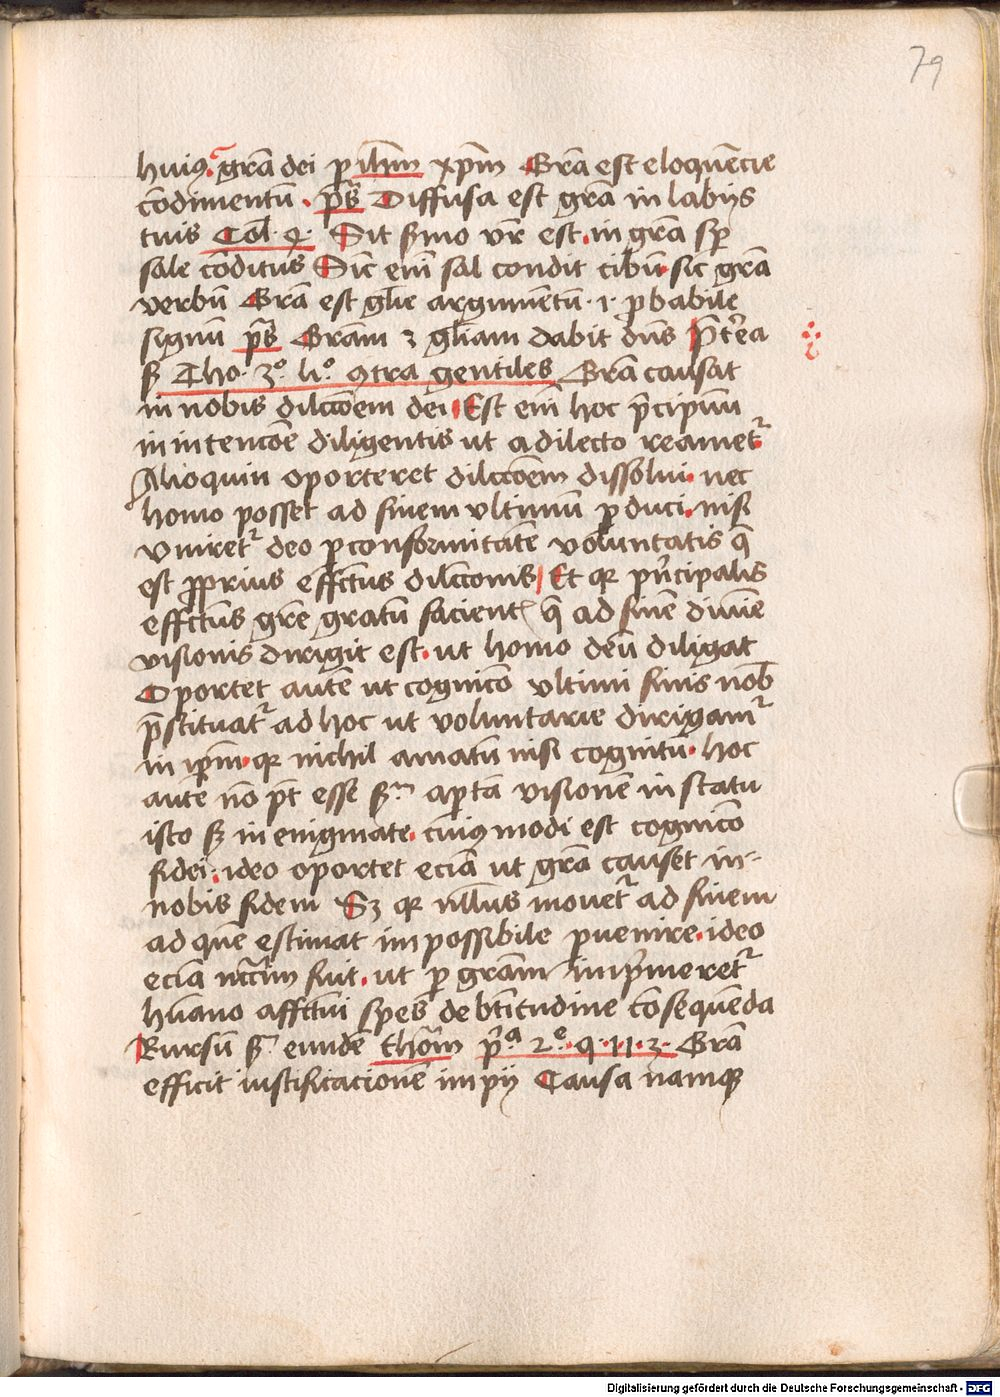 79
huiꝯ gr̄a dei ꝑ ihm̄ xp̄m Gr̄a est eloquēcie
cōdimentū . p̄s Diffusa est gr̄a in labijs
tuis Col̄ . 4 . Sit ẜmo vr̄ est . in gr̄a sp̄
sale cōditus Sic em̄ sal condit cibū sic gr̄a
verbū Gr̄a est gl̄ie argumentū . i . ꝓbabile
signū p̄s Gr̄am ⁊ gl̄iam dabit dn̄s P̄terea
ẜ Tho . 3º . li º . ꝯtra gentiles Gr̄a causat
in nobis dilcc̄oem dei Est em̄ hoc p̄cipuū
in intencōe diligentis ut a dilecto reametᷣ
Alioquin oporteret dilcc̄oem dissolui . nec
homo posset ad finem vltimū ꝑduci . nisi
vniretᷣ deo ꝑ conformitatē voluntatis q̄
est ꝓprius effc̄tus dilcc̄onis Et qꝛ pn̄cipalis
effc̄tus gr̄e gratū facientꝭ q̄ ad finē diuīe
visionis dirigit est . ut homo deū diligat
Oportet autē ut cognicō vltimi finis nob̄
p̄stituatᷣ ad hoc ut voluntarie dirigamᷣ
in ip̄m . qꝛ nichil amatū nisi cognitū . hoc
autē nō pōt esse ẜm apertā visionē in statu
isto ẜ in enigmate . cuiꝯmodi est cognicō
fidei . ideo oportet eciā ut gr̄a causet in-
nobis fidem Sꝫ qꝛ nll̄us mouetᷣ ad finem
ad quē estimat impossibile ꝑuenire . ideo
eciā ncc̄rm̄ fuit . ut ꝑ gr̄am imp̄meretᷣ
hūano affc̄tui spes de bt̄itudine cōsequēda
Rursū ẜm eundē thom̄ pᷓ 2ᵉ . q . 113 . Gr̄a
efficit iustificacionē impij Causa namqꝫ
Digitalisierung gefördert durch die Deutsche Forschungsgemeinschaft - DFG